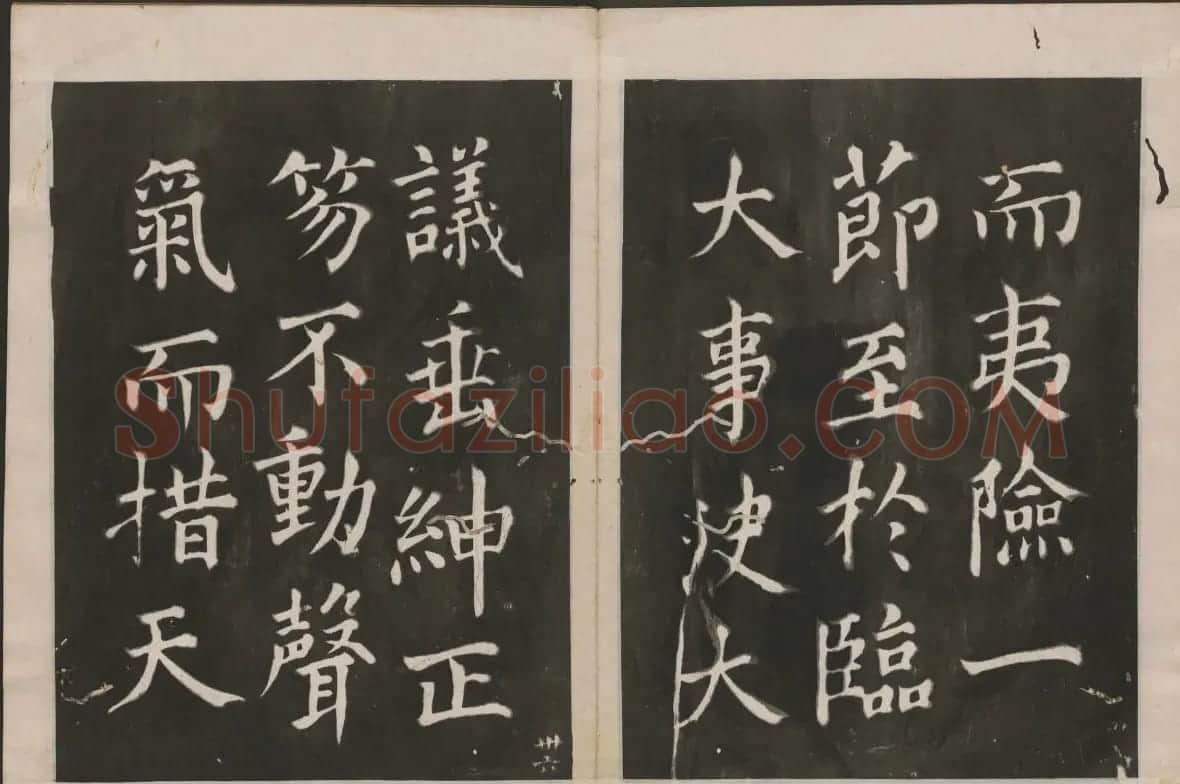 而夷險一
節至於臨
大事決大
議垂紳正
笏不動聲
氣而措天
卅六
Shufaziliao.COM